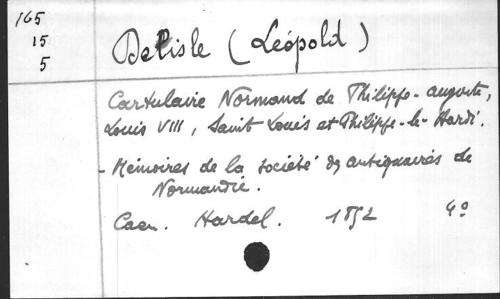 165
15
5
Delisle (Léopold)
Cartulaire Normand de Philippe-auguste,
Louis VIII, Saint Louis et Philippe-le-Hardi.
- Mémoires de la société des antiquaires de
Normandie.
Caen. Hardel. 1852 4º